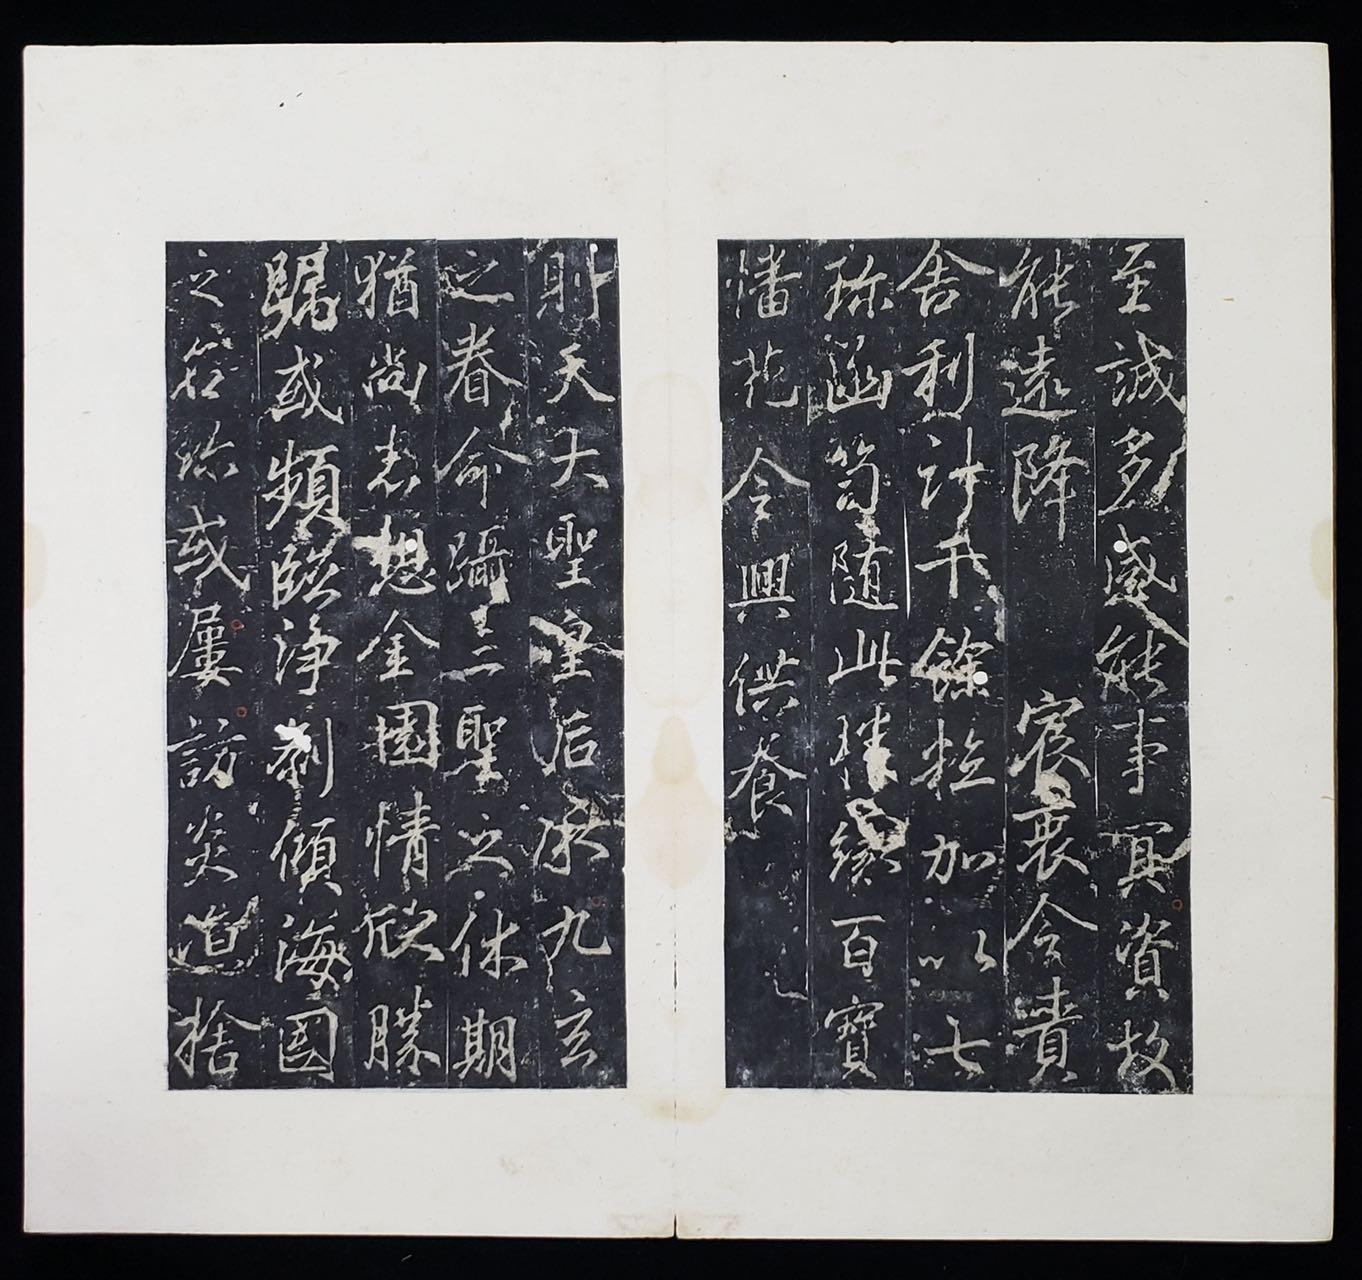 至誠多感能事冥資故
能遠降　宸衷令賫
舍利計千餘粒加以七
珎函笥隨此勝緣百寶
幡花令興供養
則天大聖皇后承九玄
之眷命躡三聖之休期
猶尚志想金園情欣勝
躅或頻臨淨剎傾海國
之名珎或屢訪炎造捨